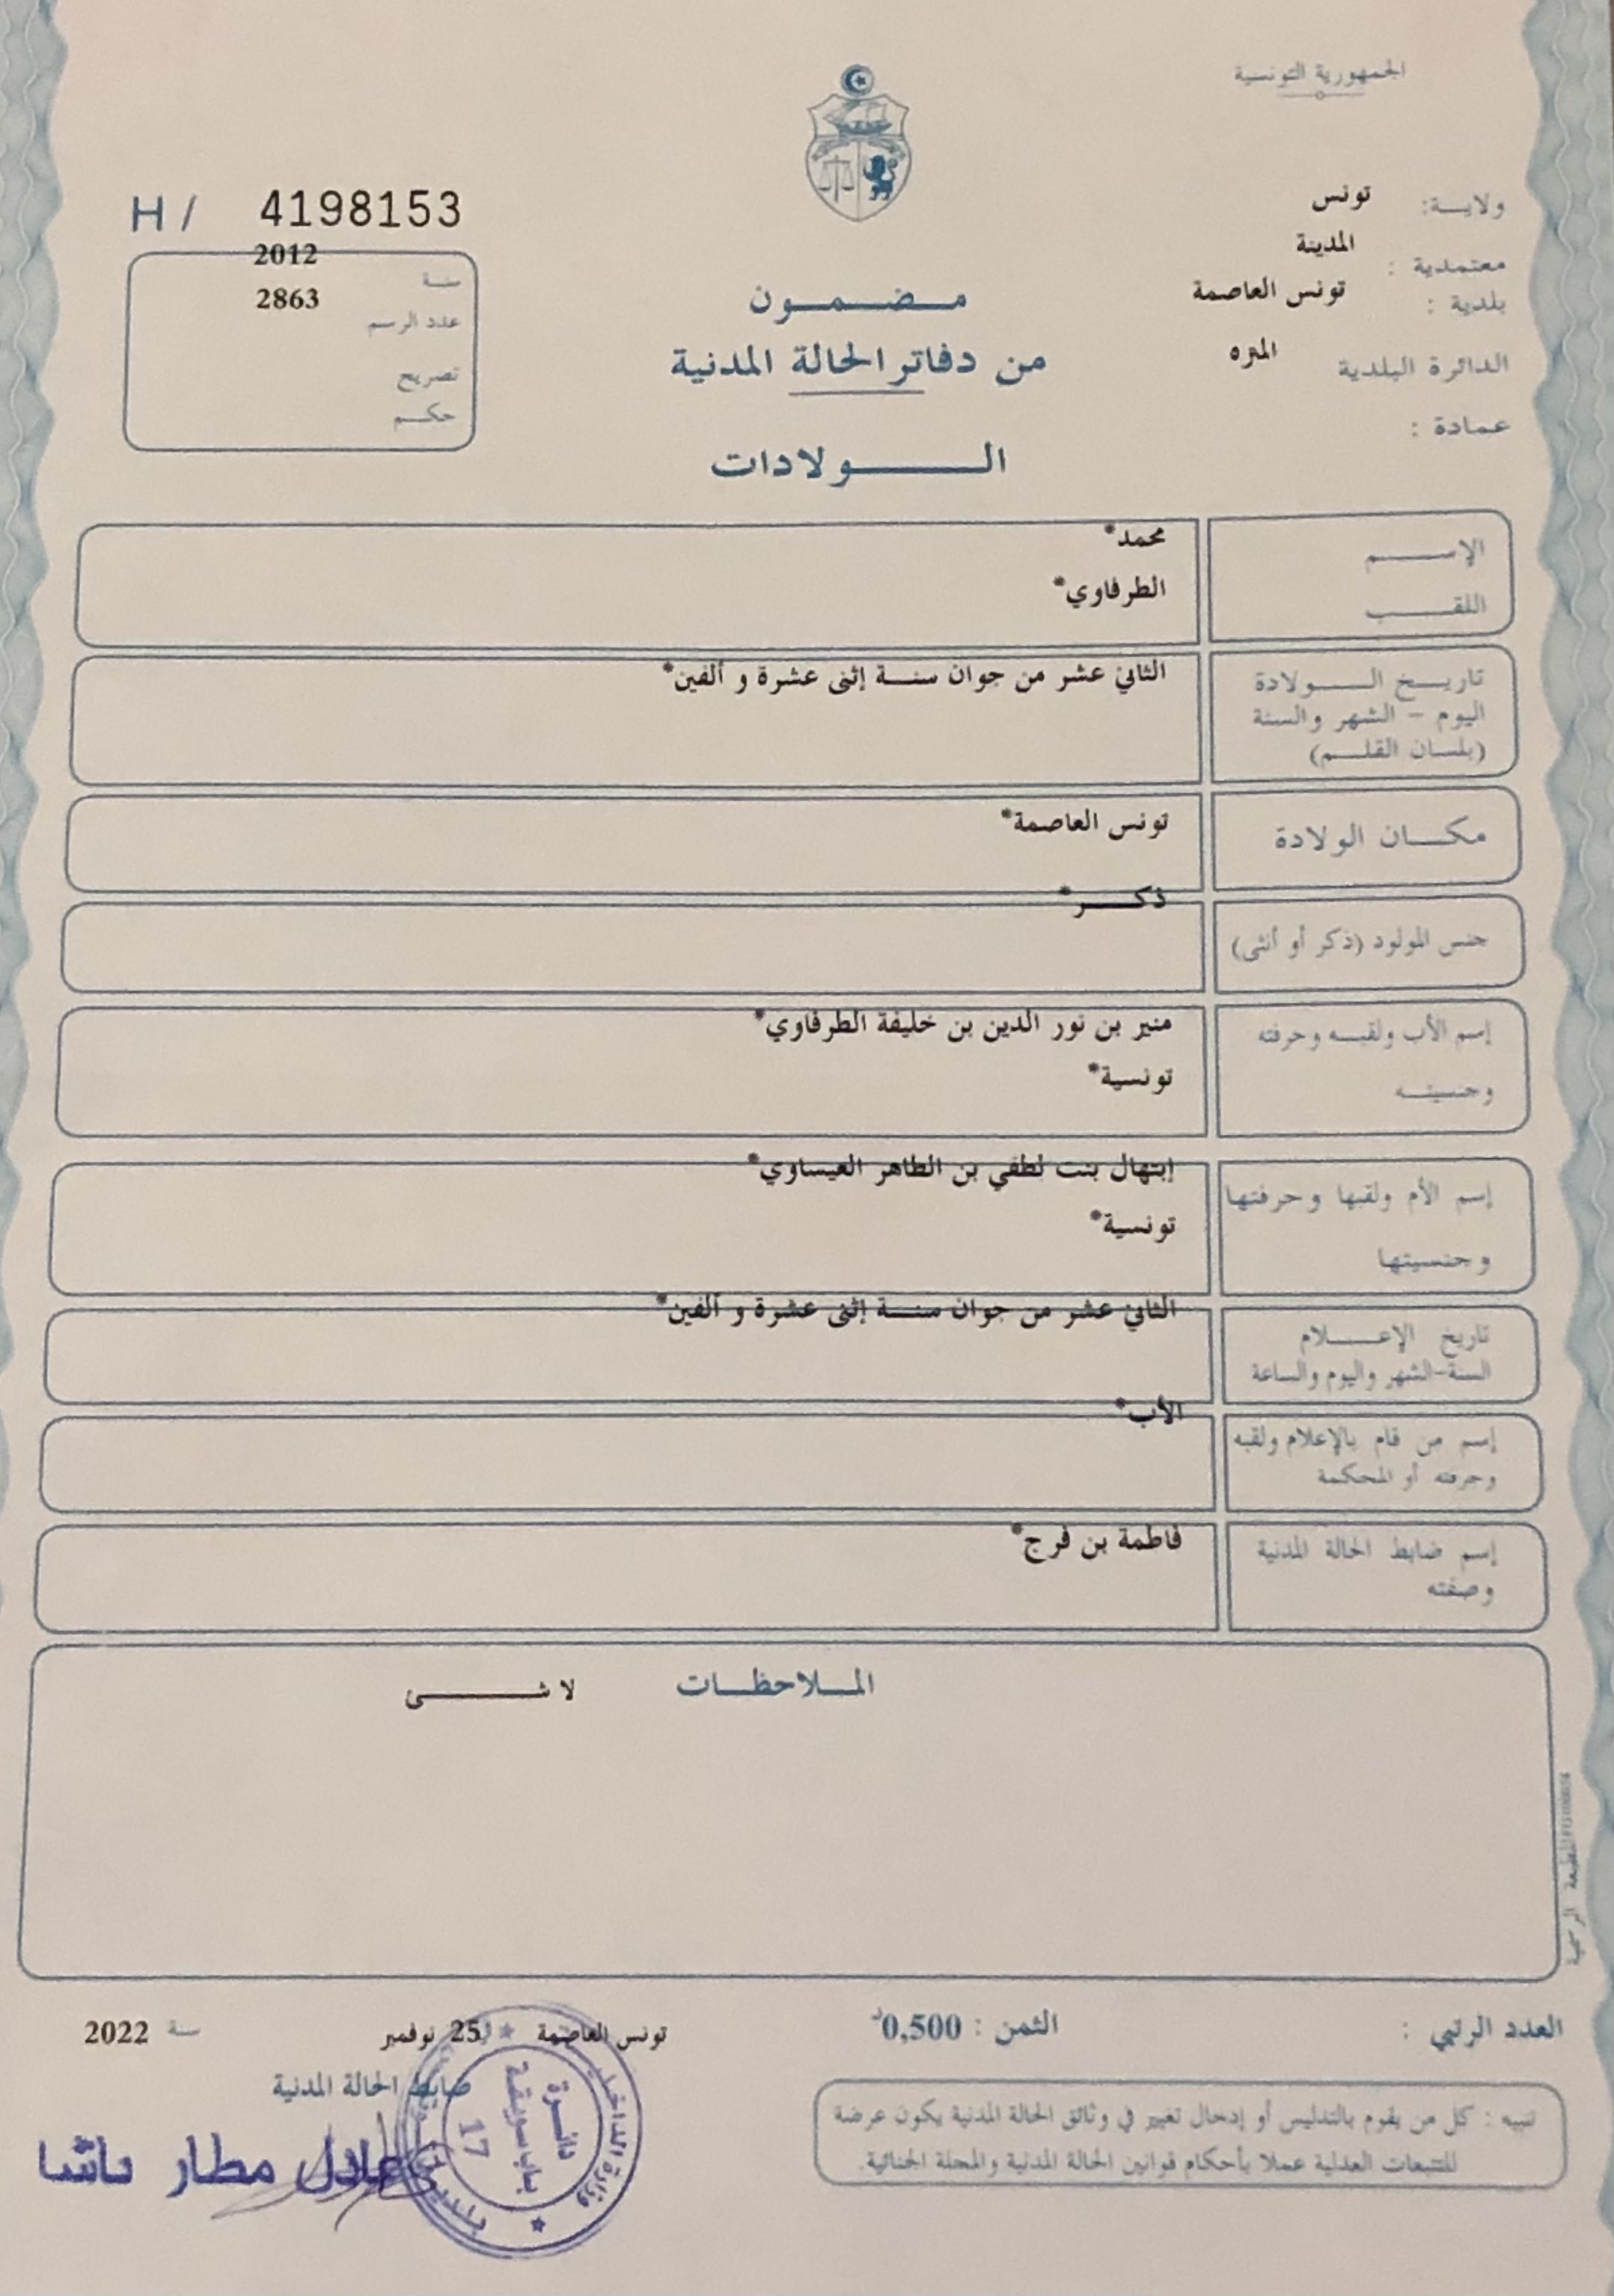 الجمهورية التونسية
ولايـة: تونس
معتمدية : المدينة
بلدية : تونس العاصمة
الدائرة البلدية المنزه
عمادة :
H / 4198153
سنة 2012
عدد الرسم 2863
تصريح
حكم
مضمون
من دفاتر الحالة المدنية
الولادات
الإسم محمد*
اللقب الطرفاوي*
تاريخ الولادة الثاني عشر من جوان سنة إثنى عشرة و ألفين*
اليوم - الشهر والسنة
(بلسان القلم)
مكان الولادة تونس العاصمة*
جنس المولود (ذكر أو أنثى) ذكر*
إسم الأب ولقبه وحرفته منير بن نور الدين بن خليفة الطرفاوي*
وجنسيته تونسية*
إسم الأم ولقبها وحرفتها إبتهال بنت لطفي بن الطاهر العيساوي*
وجنسيتها تونسية*
تاريخ الإعلام الثاني عشر من جوان سنة إثنى عشرة و ألفين*
السنة-الشهر واليوم والساعة
إسم من قام بالإعلام ولقبه الأب*
وحرفته أو المحكمة
إسم ضابط الحالة المدنية فاطمة بن فرج*
وصفته
الملاحظات لا شئ
المطبعة الرسمية
العدد الرتبي :
الثمن : 0,500د
تونس العاصمة 25 نوفمبر سنة 2022
ضابط الحالة المدنية
عادل مطار باشا
وزارة الداخلية
دائرة
باب سويقة
17
تنبيه : كل من يقوم بالتدليس أو إدخال تغيير في وثائق الحالة المدنية يكون عرضة
للتتبعات العدلية عملا بأحكام قوانين الحالة المدنية والمجلة الجنائية.